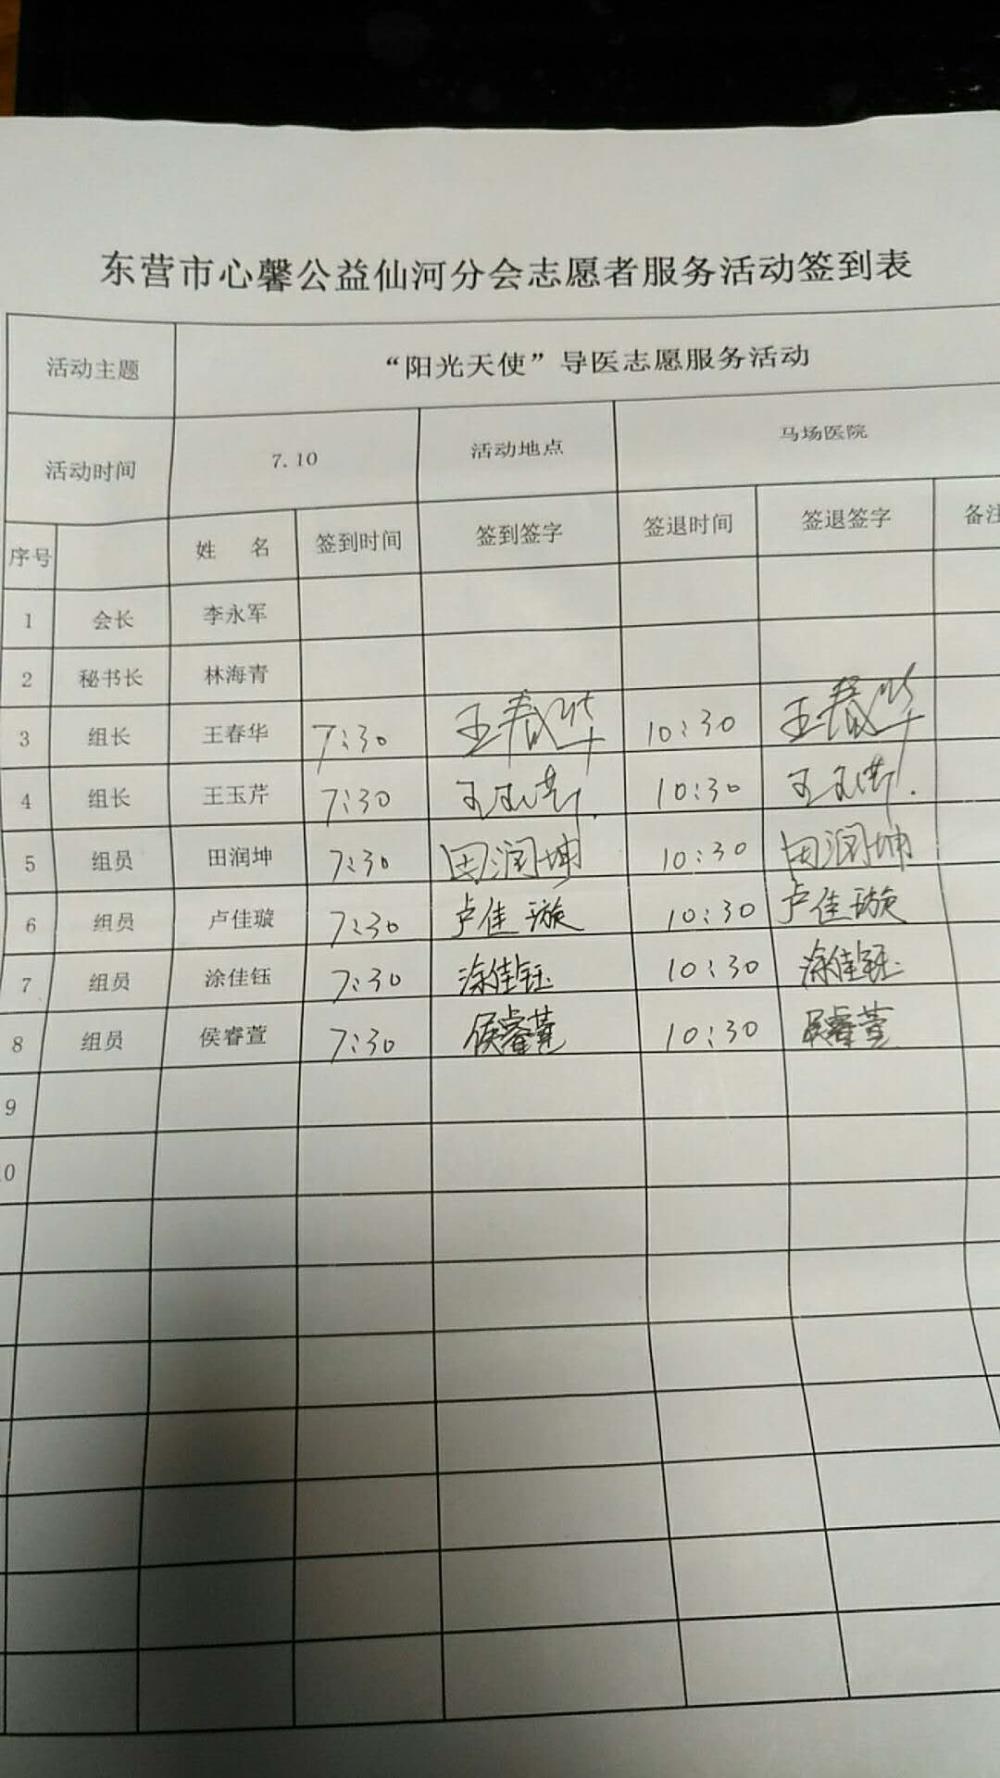 东营市心馨公益仙河分会志愿者服务活动签到表
活动主题 “阳光天使”导医志愿服务活动
活动时间 7.10 活动地点 马场医院
序号 姓 名 签到时间 签到签字 签退时间 签退签字 备注
1 会长 李永军
2 秘书长 林海青
3 组长 王春华 7:30 王春华 10:30 王春华
4 组长 王玉芹 7:30 王玉芹 10:30 王玉芹
5 组员 田润坤 7:30 田润坤 10:30 田润坤
6 组员 卢佳璇 7:30 卢佳璇 10:30 卢佳璇
7 组员 涂佳钰 7:30 涂佳钰 10:30 涂佳钰
8 组员 侯睿萱 7:30 侯睿萱 10:30 侯睿萱
9
10